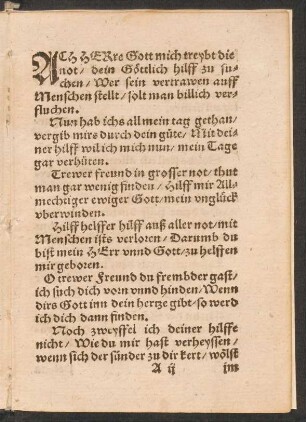 ACH HERre Gott mich treybt die
not / dein Göttlich hilff zu su-
chen / Wer sein vertrawen auff
Menschen stellt / solt man billich ver-
fluchen.
Nun hab ichs all mein tag gethan /
vergib mirs durch dein güte / Mit dei-
ner hilff wil ich mich nun / mein Tage
gar verhüten.
Trewer freund in grosser not / thut
man gar wenig finden / Hilff mir All-
mechtiger ewiger Gott / mein vnglück
vberwinden.
Hilff helffer hilff auß aller not / mit
Menschen ists verloren / Darumb du
bist mein HErr vnnd Gott / zu helffen
mir geboren.
O trewer Freund du frembder gast /
ich such dich vorn vnnd hinden / Wenn
dirs Gott inn dein hertze gibt / so werd
ich dich dann finden.
Noch zweyffel ich deiner hilffe
nicht / Wie du mir hast verheyssen /
wenn sich der sünder zu dir kert / wölst
A ij jm